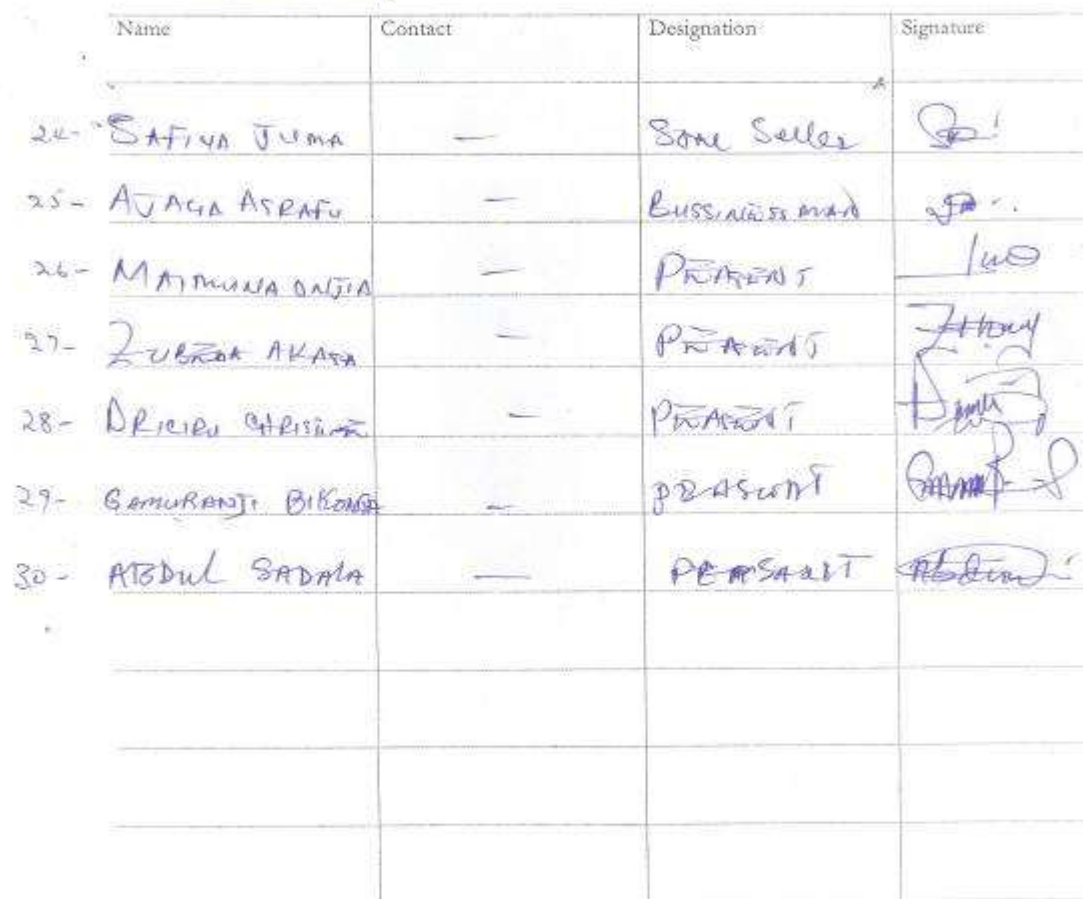 Name Contact Designation Signature
24- SAFIYA JUMA — Stone Seller
25- AJAGA ASRAFU — BUSSINESSMAN
26- MAIMUNA ONJIA — PEASENT
27- ZUBEDA AKASA — PEASENT
28- DRICIRU CHRISTINE — PEASENT
29- GAMURANJI — PEASUNT
30- ABDUL SADALA — PEASANT